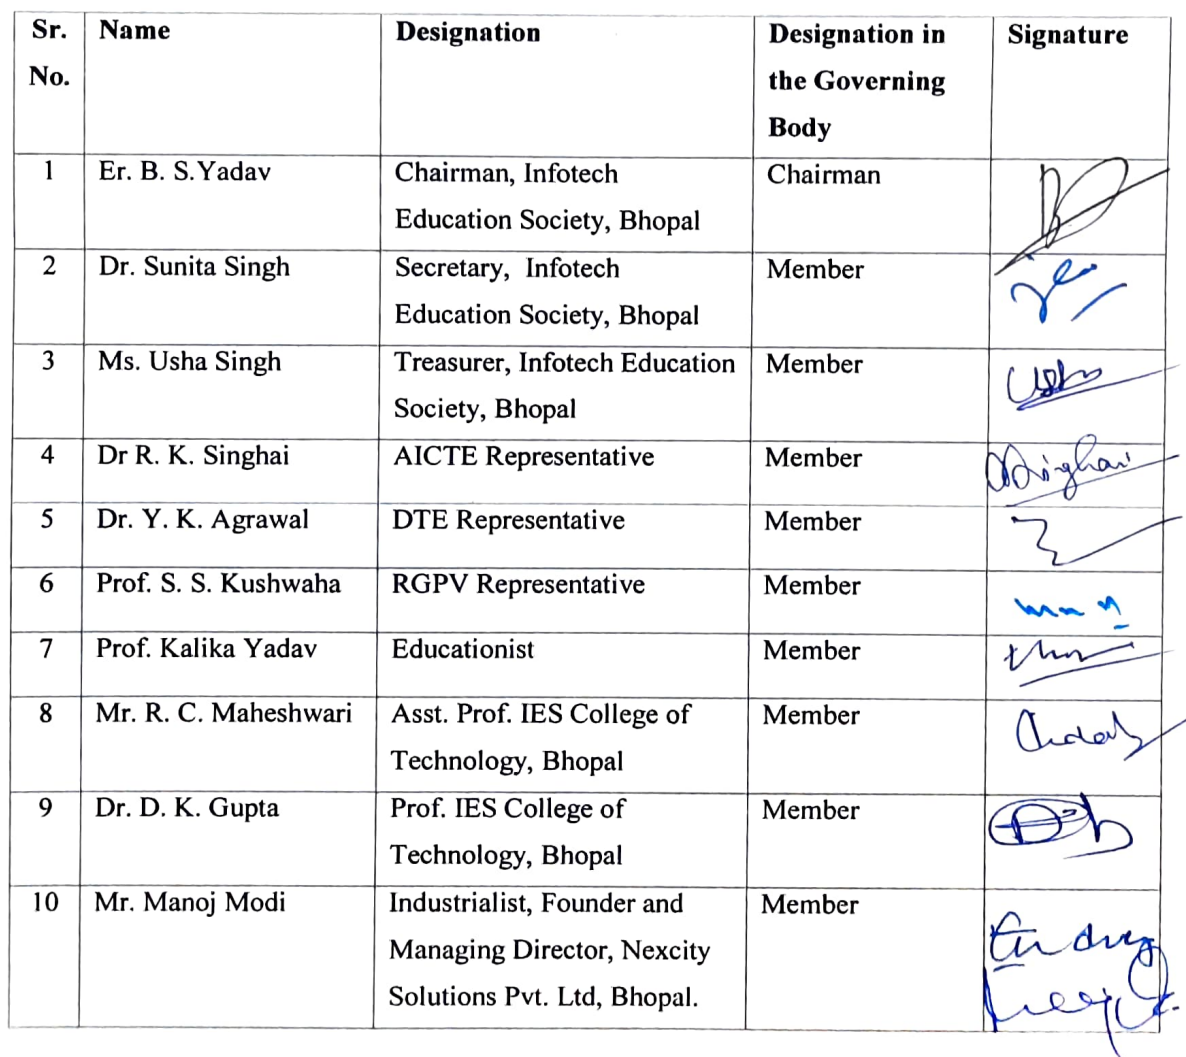 Sr. No. Name Designation Designation in the Governing Body Signature
1 Er. B. S.Yadav Chairman, Infotech Education Society, Bhopal Chairman
2 Dr. Sunita Singh Secretary, Infotech Education Society, Bhopal Member
3 Ms. Usha Singh Treasurer, Infotech Education Society, Bhopal Member Usha
4 Dr R. K. Singhai AICTE Representative Member Singhai
5 Dr. Y. K. Agrawal DTE Representative Member
6 Prof. S. S. Kushwaha RGPV Representative Member
7 Prof. Kalika Yadav Educationist Member
8 Mr. R. C. Maheshwari Asst. Prof. IES College of Technology, Bhopal Member
9 Dr. D. K. Gupta Prof. IES College of Technology, Bhopal Member
10 Mr. Manoj Modi Industrialist, Founder and Managing Director, Nexcity Solutions Pvt. Ltd, Bhopal. Member